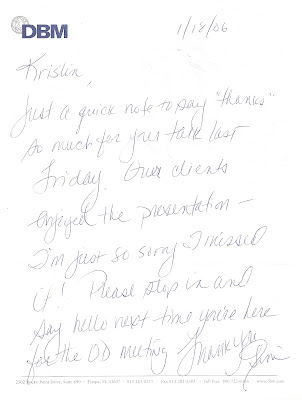 DBM
1/18/06
Kristin,
Just a quick note to say "thanks"
so much for your talk last
Friday. Our clients
enjoyed the presentation –
I'm just so sorry I missed
it! Please stop in and
say hello next time you're here
for the OD meeting Thank you